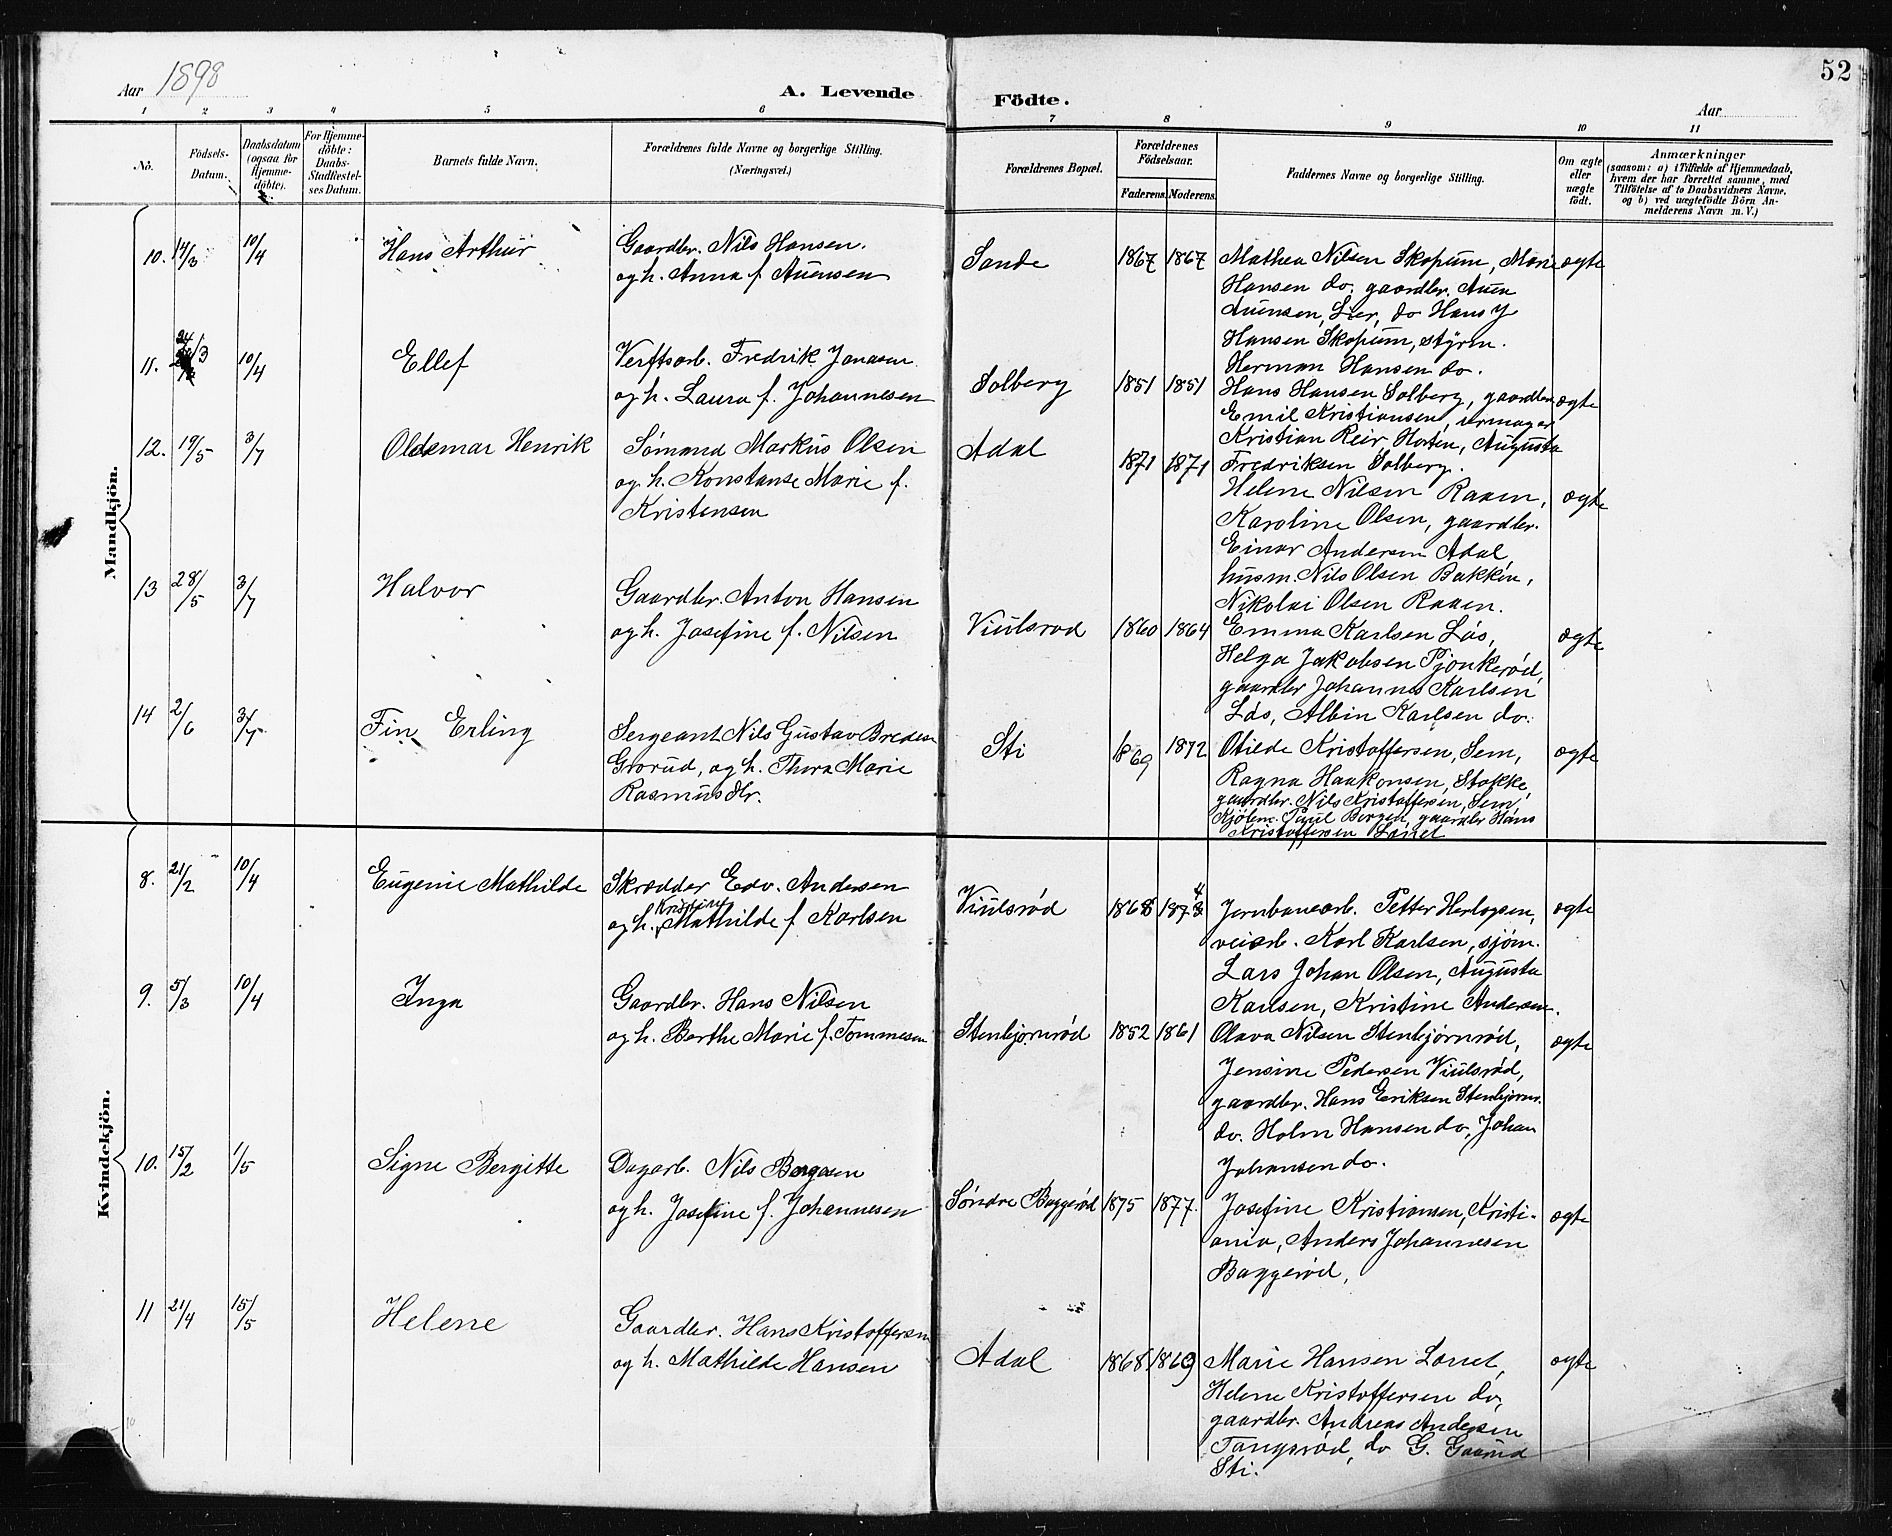 52
Aar 1898
A. Levende Födte.
Aar
1 2 3 4 5 6 7 8 9 10 11
No.
Födsels-Datum.
Daabsdatum (ogsaa for Hjemme-döbte).
For Hjemme-döbte: Daabs-Stadfæstel-ses Datum.
Barnets fulde Navn.
Forældrenes fulde Navne og borgerlige Stilling.
(Næringsvei.)
Forældrenes Bopæl.
Forældrenes Födselsaar.
Faderens. Moderens.
Faddernes Navne og borgerlige Stilling.
Om ægte eller uægte födt.
Anmærkninger
(saasom: a) i Tilfælde af Hjemmedaab,
hvem der har forrettet samme, med
Tilföielse af to Daabsvidners Navne,
og b) ved uægtefödte Börn An-
melderens Navn m. V.)
Mandkjön.
10. 14/3 10/4 Hans Arthur
Gaardbr. Nils Hansen
og h. Anna f. Auensen
Sande 1867 1867
Mathea Nilsen Skopum, Marie
Hansen do. gaardbr. Auen
Auensen, Lier, do Hans J
Hansen Skopum, styrm.
Herman Hansen do.
ægte
11. 24/3 10/4 Ellef
Verftsarb. Fredrik Jonasen
og h. Laura f. Johannesen
Solberg 1851 1851
Hans Hansen Solberg, gaardbr.
Emil Kristiansen, urmager
Kristian Reir Horten, Augusta
Fredriksen Solberg.
ægte
12. 19/5 3/7 Oldemar Henrik
Sømand Markus Olsen
og h. Konstanse Marie f.
Kristensen
Adal 1871 1871
Helene Nilsen Raaen,
Karoline Olsen, gaardbr.
Einar Andersen Adal,
husm. Nils Olsen Bakken,
Nikolai Olsen Raaen.
ægte
13 28/5 3/7 Halvor
Gaardbr. Anton Hansen
og h. Josefine f. Nilsen
Viulsrod 1860 1864
Emma Karlsen Løs,
Helga Jakobsen Pjonkerød,
gaardbr Johannes Karlsen
Løs, Albin Karlsen do.
ægte
14 2/6 3/7 Fin Erling
Sergeant Nils Gustav Bredesen
Grorud, og h. Thora Marie
Rasmusdtr.
Sti 1869 1872
Otilde Kristoffersen, Sem,
Ragna Haakonsen, Stokke,
gaardbr. Nils Kristoffersen, Sem,
Kjølem. Paul Bergen, gaardbr Hans
Kristoffersen
ægte
Kvindekjön.
8. 21/2 10/4 Eugenie Mathilde
Skrædder Edv. Andersen
Kristine
og h. Mathilde f Karlsen
Viulsrød 1868 1874
Jernbanearb. Petter Herlogsen,
veiarb. Karl Karlsen, sjøm.
Lars Johan Olsen, Augusta
Karlsen, Kristine Andersen.
ægte
9. 5/3 10/4 Inga
Gaardbr. Hans Nilsen
og h. Berthe Marie f. Tommesen
Stenbjørnrød 1852 1861
Olava Nilsen Stenbjørnrød,
Jensine Pedersen Viulsrød,
gaardbr. Hans Eriksen Stenbjørnr.
do. Holm Hansen do, Johan
Johansen do.
ægte
10. 15/2 1/5 Signe Bergitte
Dagarb. Nils Borgersen
og h. Josefine f. Johannesen
Søndre Baggerød 1875 1877.
Josefine Kristiansen, Kristi-
ania, Anders Johannesen
Baggerød,
ægte
11 21/4 15/5 Helene
Gaardbr. Hans Kristoffersen
og h. Mathilde Hansen
Adal 1868 1869
Marie Hansen
Helene Kristoffersen do,
gaardbr. Andreas Andersen
Tangsrød, do G.
Sti.
ægte
10